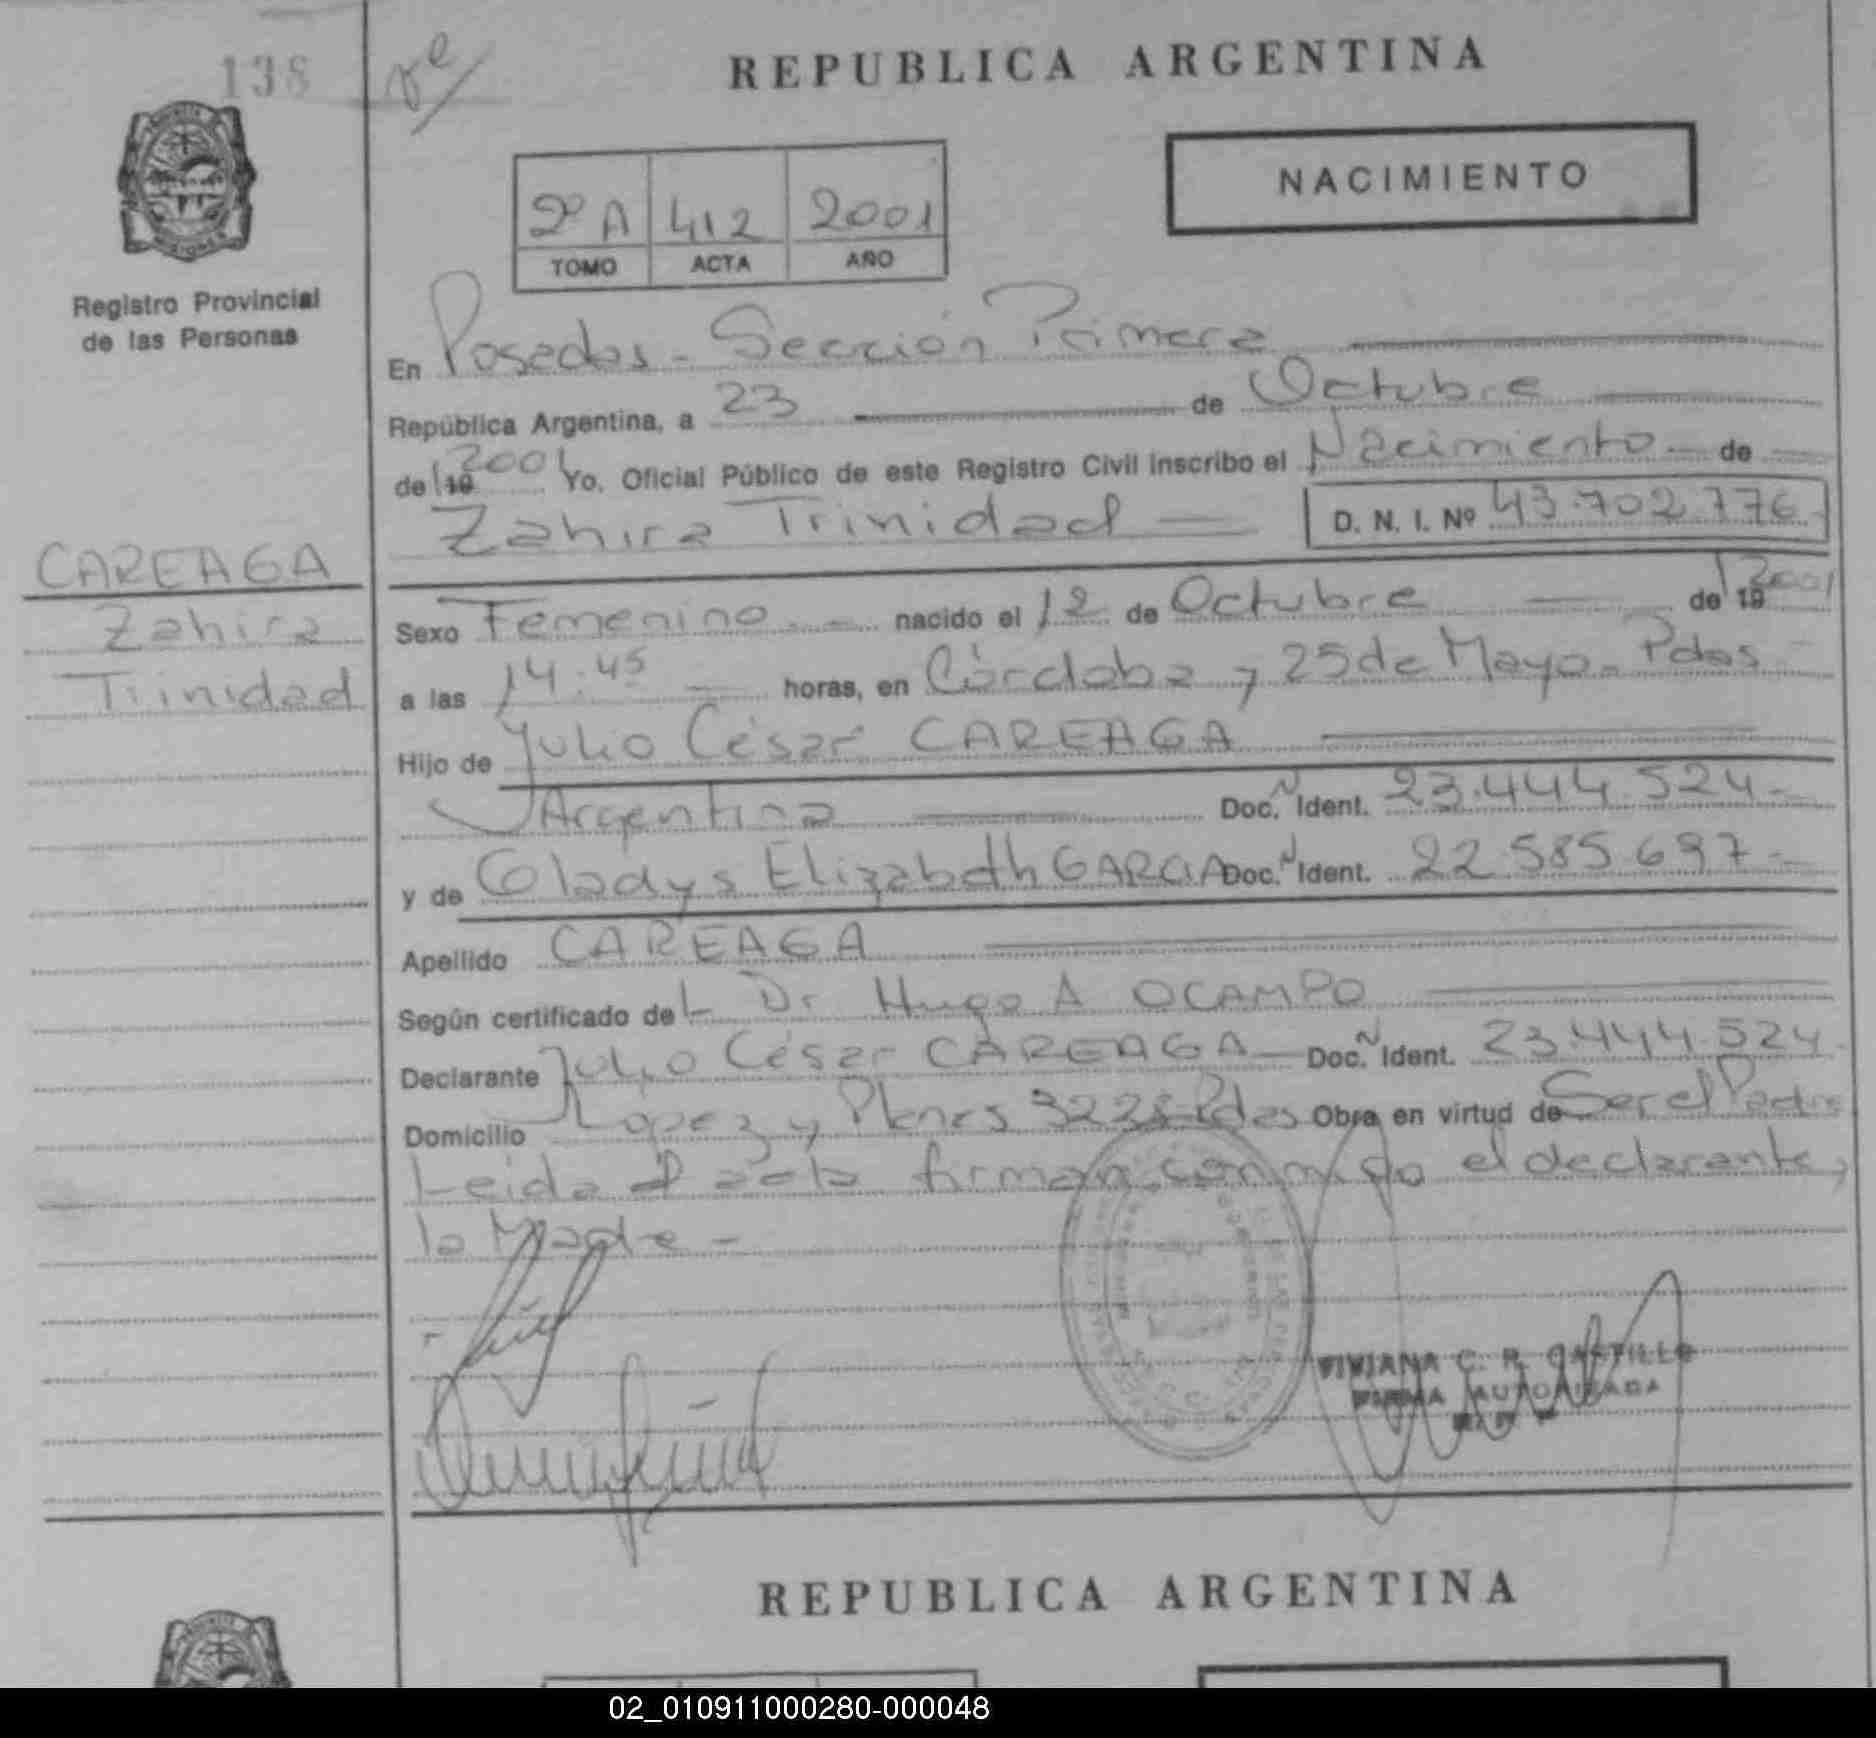 138
REPUBLICA ARGENTINA
NACIMIENTO
2º A 412 2001
TOMO ACTA AÑO
Registro Provincial
de las Personas
En Posadas - Sección Primera
República Argentina, a 23 de Octubre
de 19 2001 Yo, Oficial Público de este Registro Civil inscribo el Nacimiento de
Zahira Trinidad D. N. I. Nº 43.702.776
CAREAGA
Zahira
Trinidad
Sexo Femenino nacido el 12 de Octubre de 19 2001
a las 14:45 horas, en Córdoba y 25 de Mayo - Pdas
Hijo de Julio César CAREAGA
Argentina Doc. Ident. 23.444.524
y de Gladys Elizabeth GARCIA Doc. Ident. 22.585.697
Apellido CAREAGA
Según certificado del Dr Hugo A OCAMPO
Declarante Julio César CAREAGA Doc. Ident. 23.444.524
Domicilio Lopez y Planes 3228 Pdas Obra en virtud de Ser el Padre
Leida el acta firman conmigo el declarante,
la Madre -
VIVIANA C. R. CASTILLO
FIRMA AUTORIZADA
REPUBLICA ARGENTINA
02_010911000280-000048